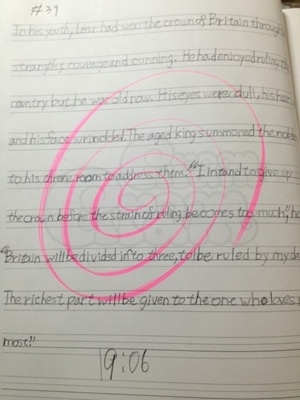 #39
In his youth, Lear had won the crown of Britain through
strangths, courage and cunning. He had enjoyed ruling th
country but he was old now. His eyes were dull, his
and his face wrinkled. The aged king summoned the noble
to his throne room to address them. "I intand to give up
the crown before the strain of ruling becomes too much," he
"Britain will be divided into three, to be ruled by my da
The richest part will be given to the one who loves
most."
19:06